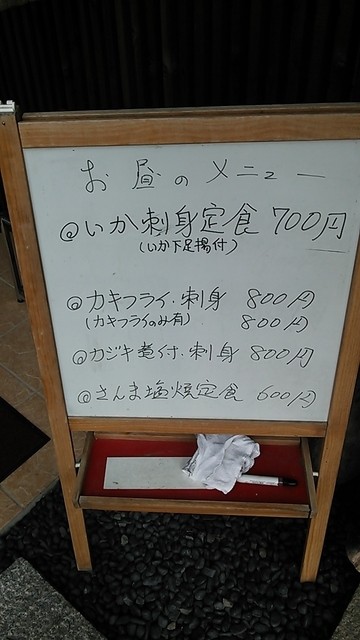 お昼のメニュー
◎いか刺身定食 700円
(いか下足揚付)
◎カキフライ・刺身 800円
(カキフライのみ有) 800円
◎カジキ煮付・刺身 800円
◎さんま塩焼定食 600円